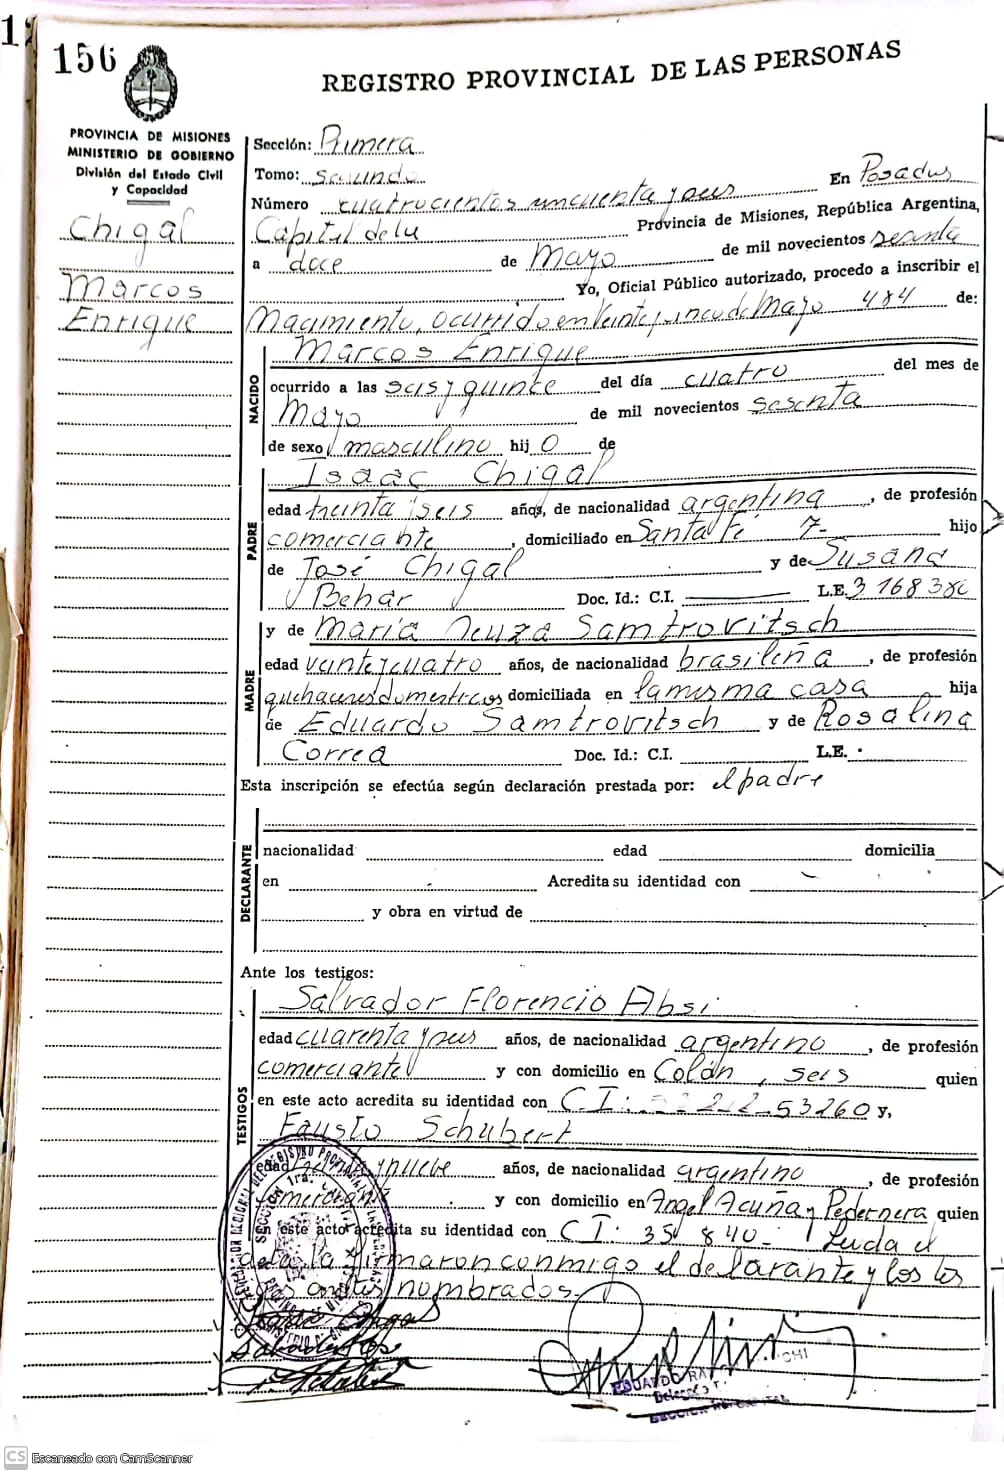 156
REGISTRO PROVINCIAL DE LAS PERSONAS
PROVINCIA DE MISIONES
MINISTERIO DE GOBIERNO
División del Estado Civil
y Capacidad
Chigal
Marcos
Enrique
Sección: Primera
Tomo: segundo
Número cuatrocientos cincuenta y seis En Posadas
Capital de la Provincia de Misiones, República Argentina,
a doce de Mayo de mil novecientos sesenta
Yo, Oficial Público autorizado, procedo a inscribir el
Nacimiento, ocurrido en Veinte y cinco de Mayo 484 de:
NACIDO
Marcos Enrique
ocurrido a las seis y quince del día cuatro del mes de
Mayo de mil novecientos sesenta
de sexo masculino hijo de
PADRE
Isaac Chigal
edad treinta y seis años, de nacionalidad argentina, de profesión
comerciante, domiciliado en Santa Fé 7- hijo
de José Chigal y de Susana
Behar Doc. Id.: C.I. L.E. 3168380
MADRE
y de María Neuza Samtrovitsch
edad veinte y cuatro años, de nacionalidad brasileña, de profesión
quehaceres domesticos domiciliada en la misma casa hija
de Eduardo Samtrovitsch y de Rosalina
Correa Doc. Id.: C.I. L.E.
Esta inscripción se efectúa según declaración prestada por: el padre
DECLARANTE
nacionalidad edad domicilia
en Acredita su identidad con
y obra en virtud de
Ante los testigos:
TESTIGOS
Salvador Florencio Absi
edad cuarenta y seis años, de nacionalidad argentino, de profesión
comerciante y con domicilio en Colón, seis quien
en este acto acredita su identidad con C.I: 53260 y,
Fausto Schubert
edad y nueve años, de nacionalidad argentino, de profesión
y con domicilio en Angel Acuña y Pedernera quien
este acto acredita su identidad con C I: 35 840- Leida el
acta la firmaron conmigo el declarante y los tes
tigos antes nombrados.
EDUARDO
Delegado
SECCION
CS Escaneado con CamScanner